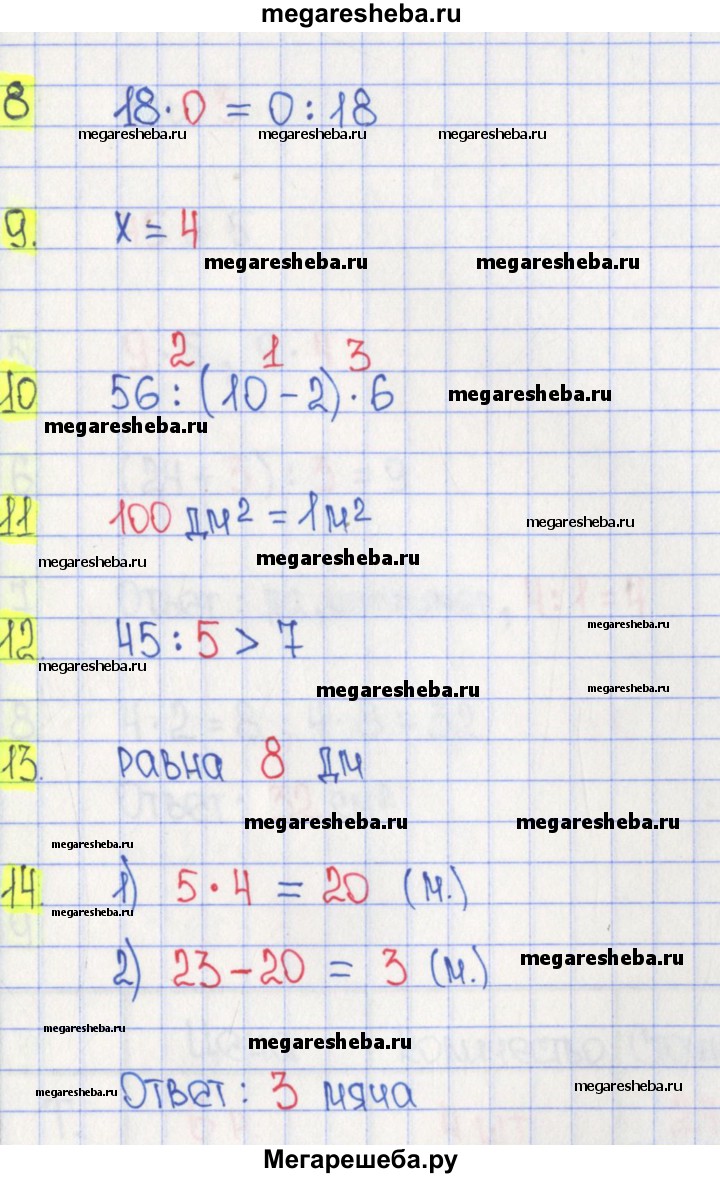 megaresheba.ru
8 18·0 = 0 : 18
megaresheba.ru megaresheba.ru megaresheba.ru
9. x = 4
megaresheba.ru megaresheba.ru
2 1 3
10 56 : (10 - 2) · 6
megaresheba.ru
megaresheba.ru
11 100 дм² = 1м²
megaresheba.ru
megaresheba.ru
megaresheba.ru
12. 45 : 5 > 7
megaresheba.ru
megaresheba.ru
megaresheba.ru
megaresheba.ru
13. равна 8 дм
megaresheba.ru megaresheba.ru
megaresheba.ru
14. 1) 5 · 4 = 20 (м.)
megaresheba.ru
2) 23 - 20 = 3 (м.)
megaresheba.ru
megaresheba.ru
megaresheba.ru
Ответ: 3 мяча
megaresheba.ru
megaresheba.ru
Мегарешеба.ру